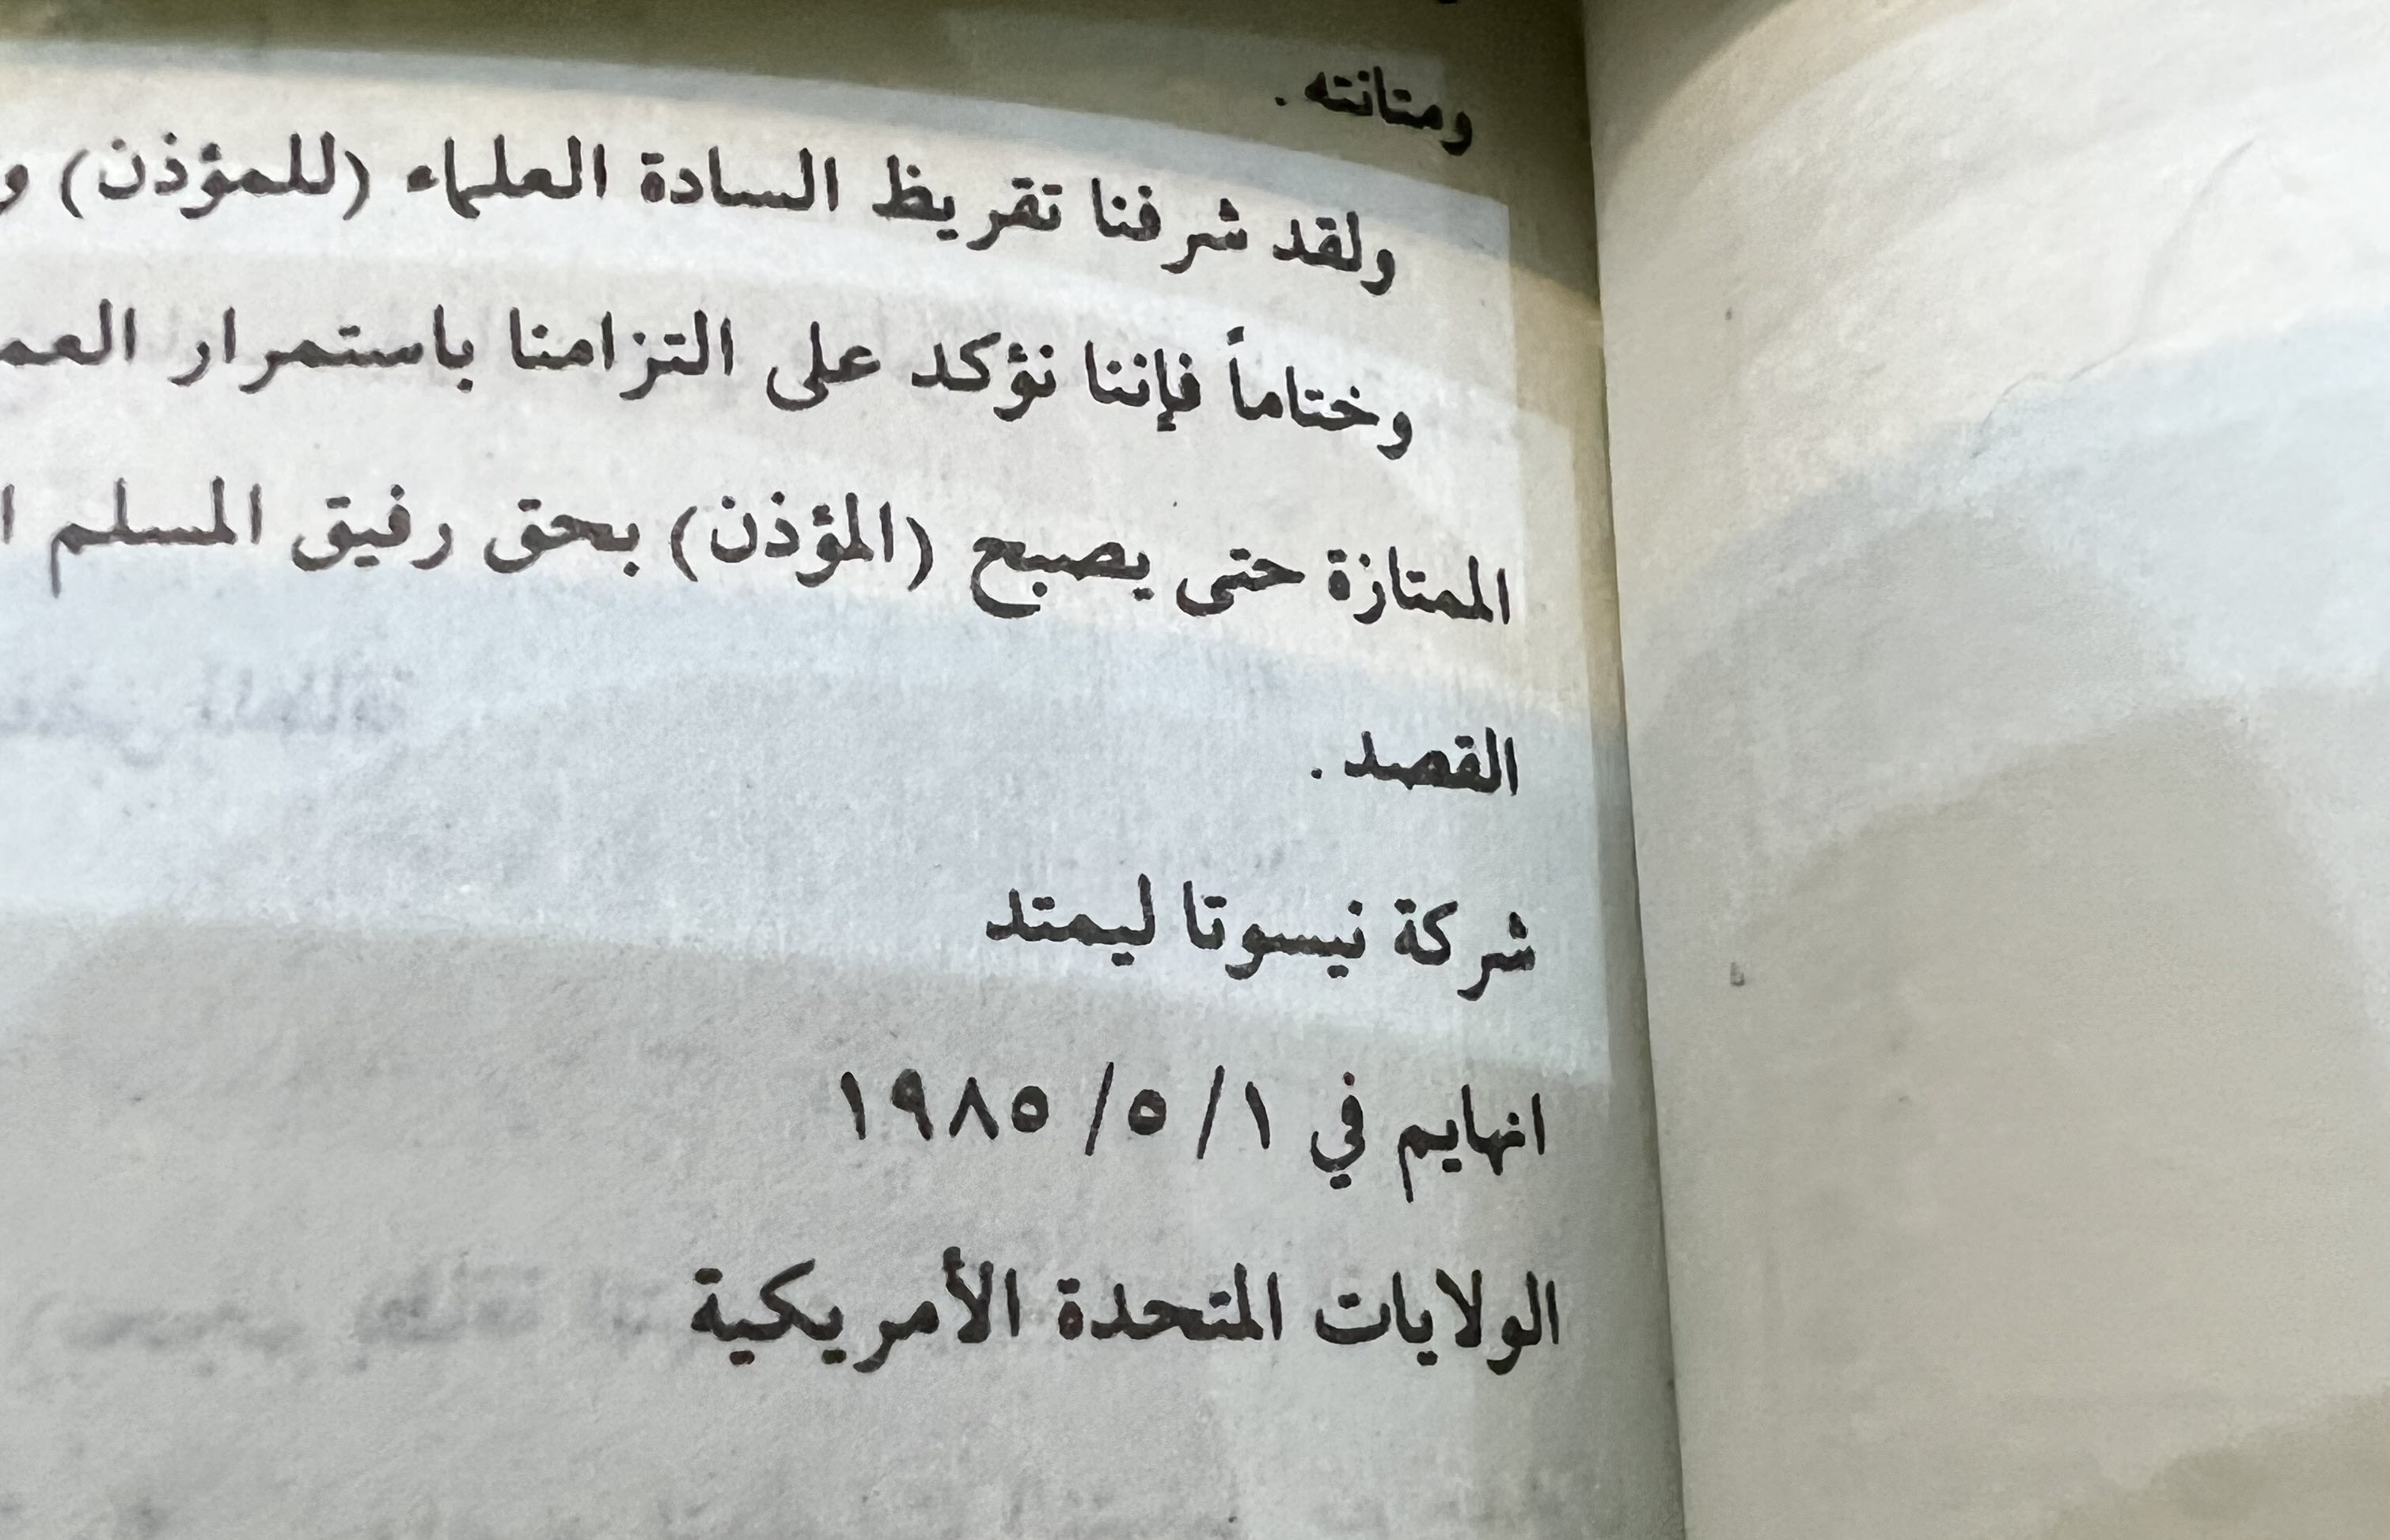 ومتانته .
ولقد شرفنا تقريظ السادة العلماء (للمؤذن) و
وختاماً فإننا نؤكد على التزامنا باستمرار
الممتازة حتى يصبح (المؤذن) بحق رفيق المسلم
القصد .
شركة نيسوتا ليمتد
انهايم في ١ / ٥ / ١٩٨٥
الولايات المتحدة الأمريكية